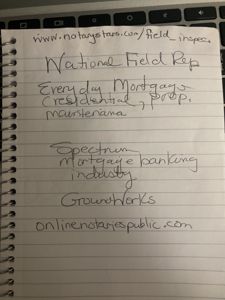 www.notarystars.com/field_inspec.
National Field Rep
Everyday Mortgage
(residential, prop.
Spectrum
mortgage banking
industry
GroundWorks
onlinenotariespublic.com